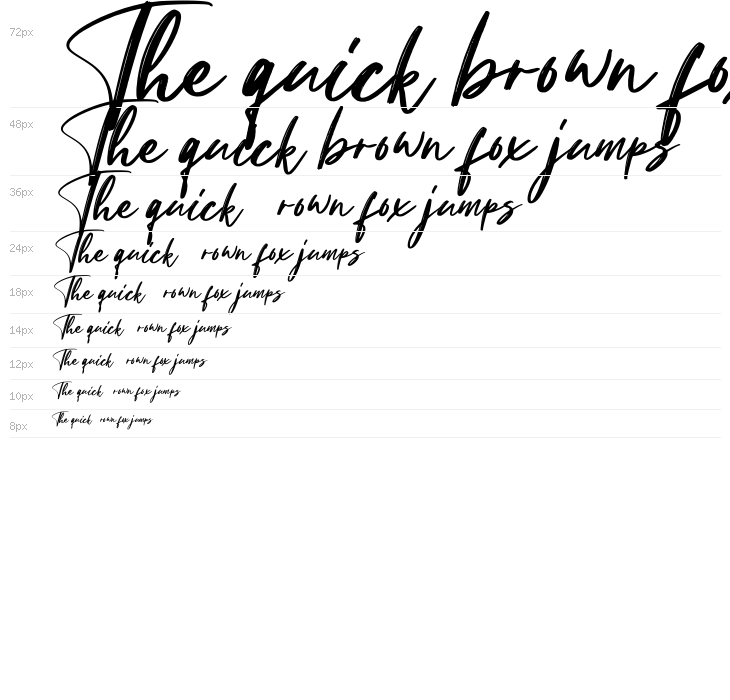 72px The quick brown fo
48px The quick brown fox jumps
36px The quick rown fox jumps
24px The quick rown fox jumps
18px The quick rown fox jumps
14px The quick rown fox jumps
12px The quick rown fox jumps
10px The quick rown fox jumps
8px The quick rown fox jumps